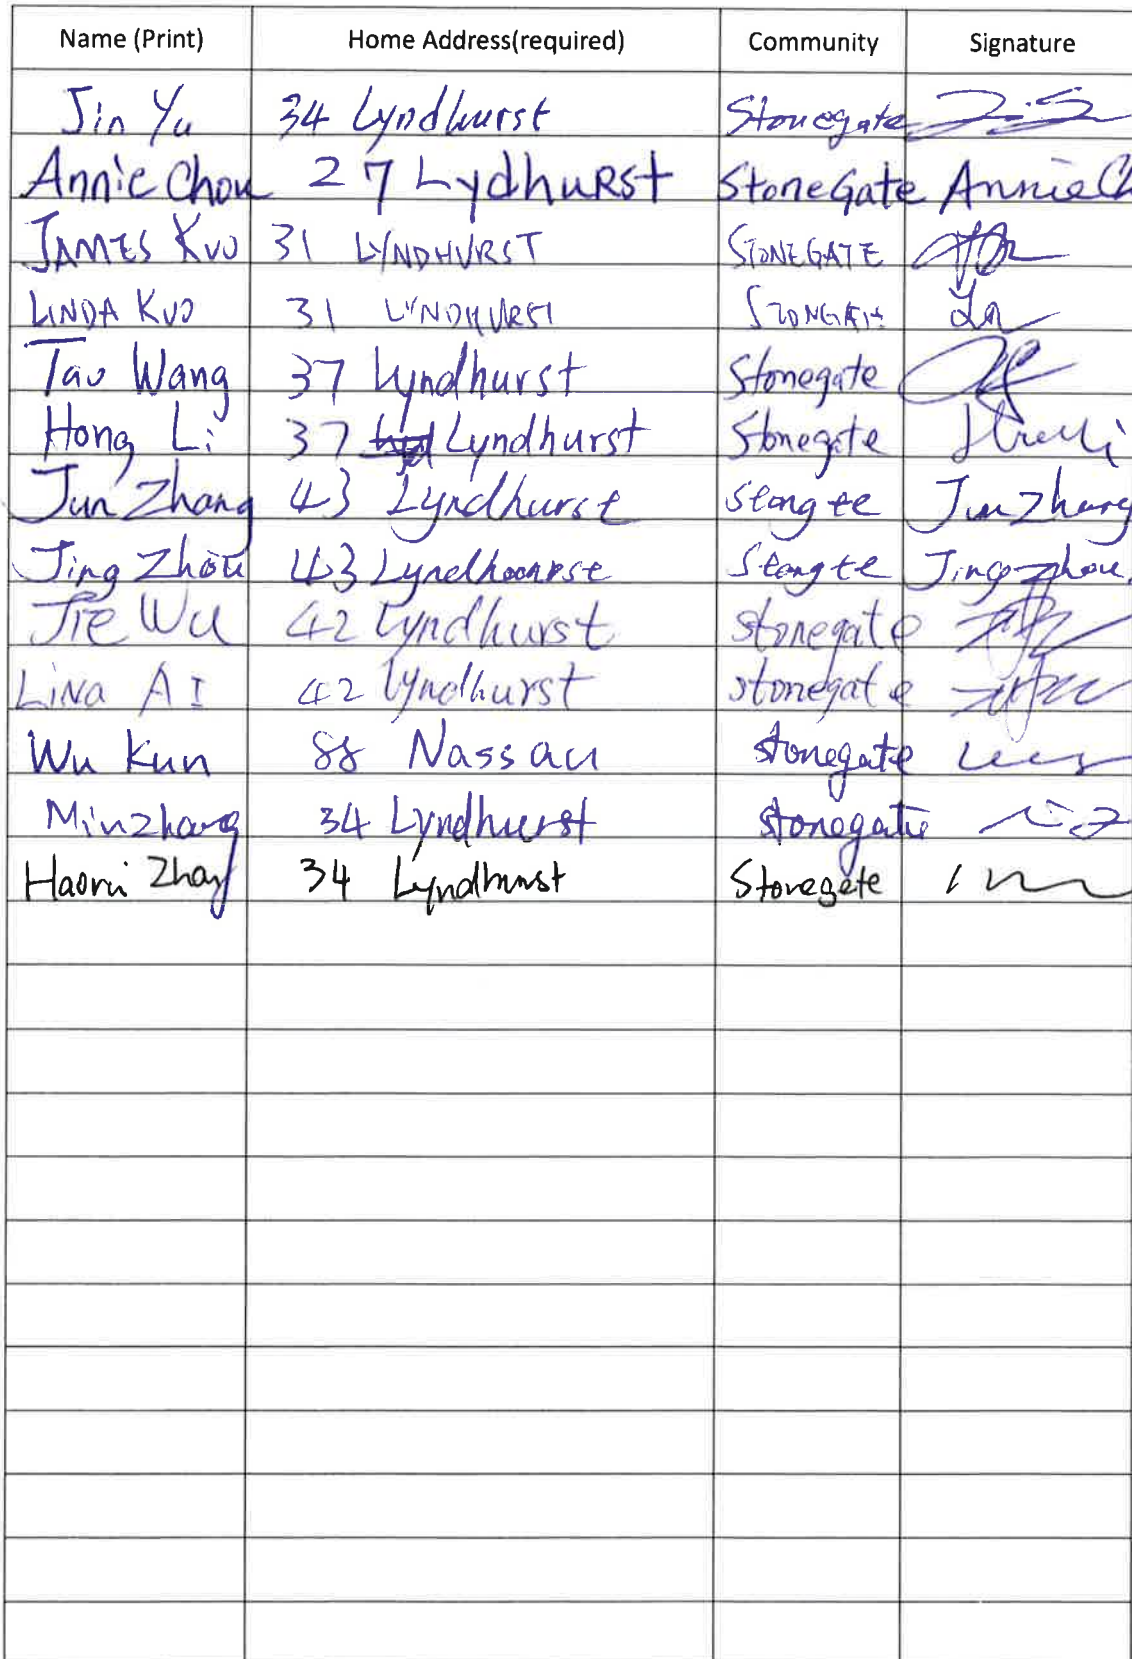 Name (Print) Home Address(required) Community Signature
Jin Yu 34 Lyndhurst Stonegate
Annie Chou 27 Lydhurst StoneGate Annie Ch
JAMES KUO 31 LYNDHURST STONEGATE
LINDA KUO 31 LYNDHURST STONGATE
Tao Wang 37 Lyndhurst Stonegate
Hong Li 37 Lyndhurst Stonegate
Jun Zhang 43 Lyndhurst Stongte Jun Zhang
Jing Zhou 43 Lyndhoorst Stongte Jing Zhou
Jie Wu 42 Lyndhurst stonegate
Lina AI 42 Lyndhurst stonegate
Wu Kun 88 Nassau stonegate
Min zhang 34 Lyndhurst stonegate
Haorui Zhang 34 Lyndhurst Stonegate